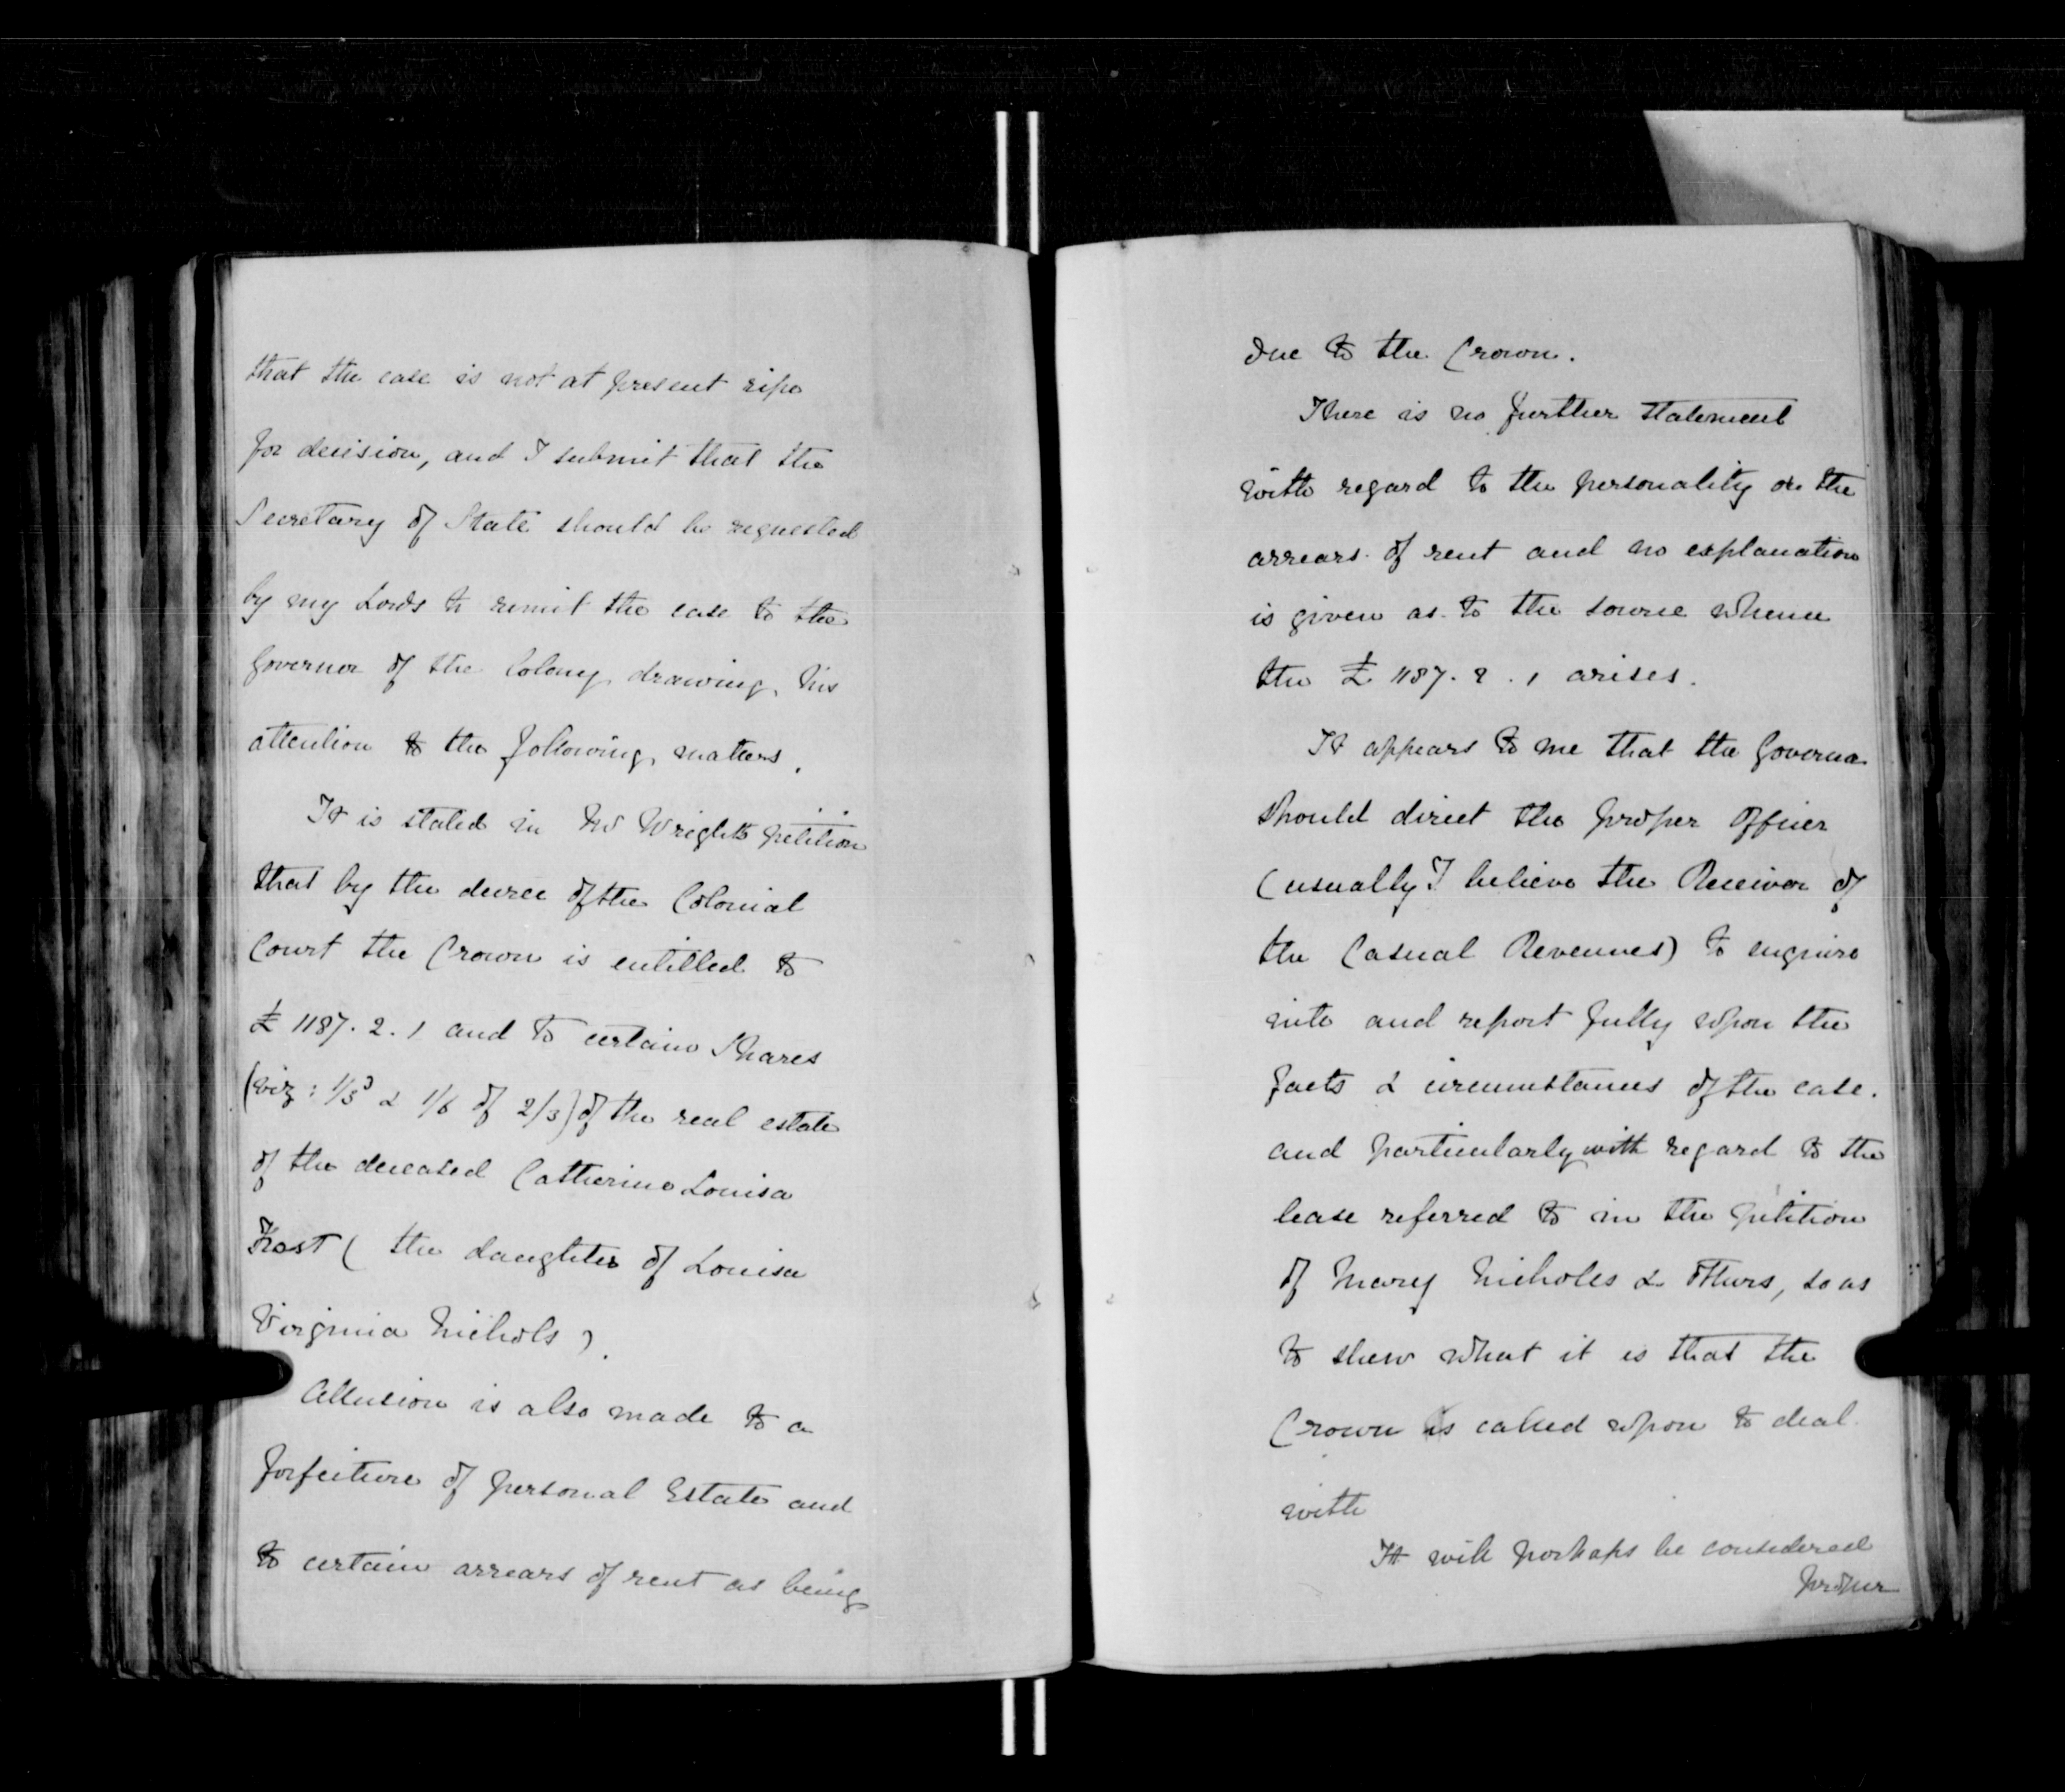 that the case is not at present ripe
for decision, and I submit that the
Secretary of State should be requested
by my Lords to remit the case to the
Governor of the Colony drawing his
attention to the following matters.
It is stated in Mr Wright's petition
that by the decree of the Colonial
Court the Crown is entitled to
£1187.2.1 and to certain Shares
(viz: 1/3 & 1/6 of 2/3) of the real estate
of the deceased Catherine Louisa
Frost (the daughter of Louisa
Virginia Nichols).
Allusion is also made to a
forfeiture of personal Estate and
to certain arrears of rent as being
due to the Crown.
There is no further statement
with regard to the personality or the
arrears of rent and no explanation
is given as to the source whence
the £1187.2.1 arises.
It appears to me that the Governor
should direct the proper Officer
(usually I believe the Receiver of
the Casual Revenues) to enquire
into and report fully upon the
facts & circumstances of the case.
and particularly with regard to the
lease referred to in the petition
of Mary Nicholls & others, so as
to shew what it is that the
Crown is called upon to deal
with
It will perhaps be considered
proper